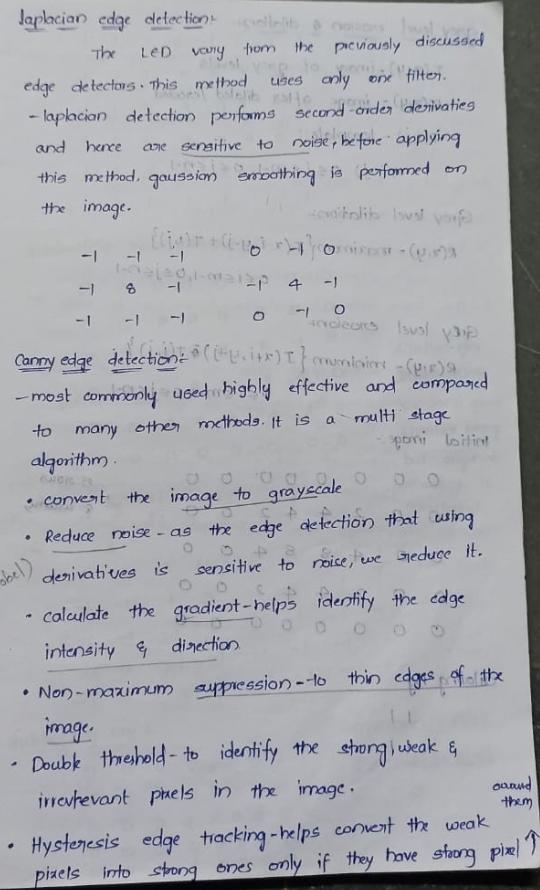 laplacian edge detection:-
The LED vary from the previously discussed
edge detectors. This method uses only one filter.
- laplacian detection performs second-order derivaties
and hence are sensitive to noise, before applying
this method, gaussion smoothing is performed on
the image.
-1 -1 -1 0 -1 0
-1 8 -1 -1 4 -1
-1 -1 -1 0 -1 0
Canny edge detection:-
- most commonly used highly effective and compared
to many other methods. It is a multi stage
algorithm.
• convert the image to grayscale
• Reduce noise - as the edge detection that using
derivatives is sensitive to noise, we reduce it.
• calculate the gradient - helps identify the edge
intensity & direction
• Non-maximum suppression - to thin edges of the
image.
• Double threshold - to identify the strong, weak &
irrevhevant pixels in the image.
• Hysteresis edge tracking - helps convert the weak
pixels into strong ones only if they have strong pixel ↑
around
them